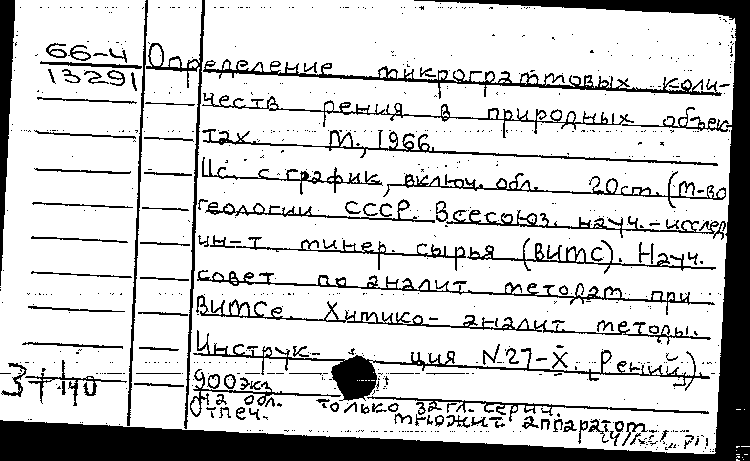 66-4 Определение микрограммовых коли-
13291
честв рения в природных объек
тах. М., 1966.
11с. с график, включ. обл. 20см. (М-во
геологии СССР. Всесоюз. науч.-исслед
ин-т минер. сырья (ВИМС). Науч.
совет по аналит. методам при
ВИМСе. Химико-аналит. методы.
Инструк- ция N27-X. [Рений]).
900экз.
На обл. только загл. серии.
Отпеч. множит. аппаратом.